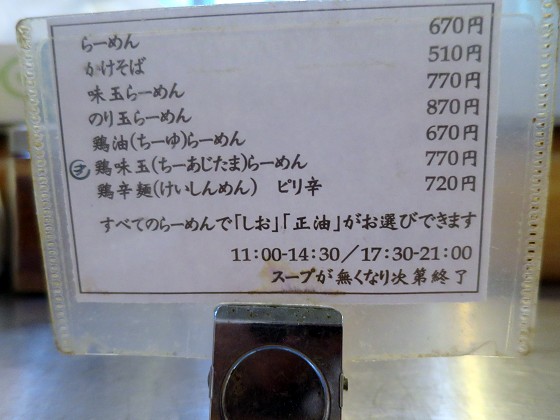 らーめん 670円
かけそば 510円
味玉らーめん 770円
のり玉らーめん 870円
鶏油(ちーゆ)らーめん 670円
㋔鶏味玉(ちーあじたま)らーめん 770円
鶏辛麺(けいしんめん) ピリ辛 720円
すべてのらーめんで「しお」「正油」がお選びできます
11:00-14:30／17:30-21:00
スープが無くなり次第終了